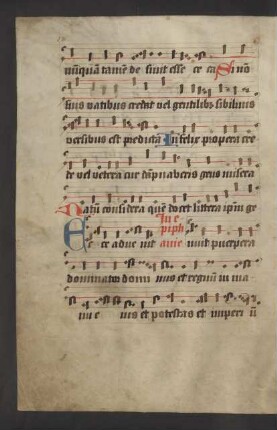 nūquā tamē de sinit esse ce ca Si nō
suis vatibus credit vel gentilibȝ sibilinis
versibus est p̄dicta Infelix propera cre
de vel vetera cur dāpnaberis gens misera
Natū considera quē docet littera ipm̄ ge
In e
piph
Ecce adue nit anie
dominator domi nus et regnū in ma
nu e ius et potestas et imperi ū